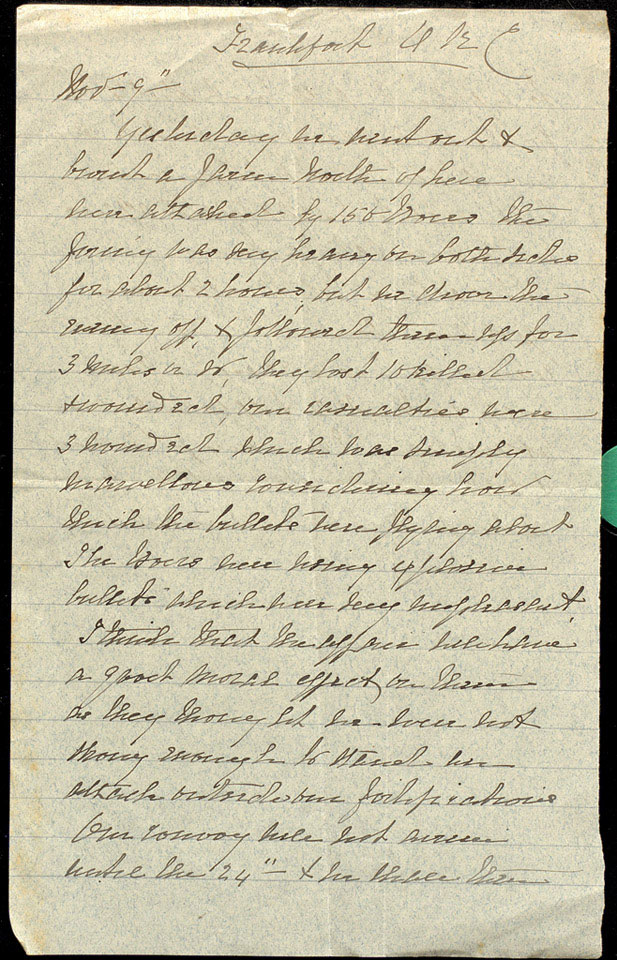 Frankfort O R C
Nov 9"
Yesterday we went out &
burnt a farm North of here
were attacked by 150 Boers the
firing was very heavy on both sides
for about 2 hours, but we drove the
enemy off, & followed them up for
3 miles or so, they lost 10 killed
& wounded, our casualties were
3 wounded which was simply
marvellous considering how
thick the bullets were flying about
The Boers were using explosive
bullets which were very unpleasant,
I think that the affair will have
a good moral effect on them
as they thought we were not
strong enough to stand an
attack outside our fortifications
Our convoy will not arrive
until the 24" & we shall then